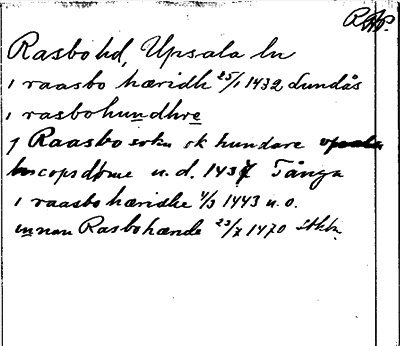 RAP.
Rasbo hd, Upsala ln
i raasbo hæridh 25/1 1432 Lundås
i rasbohundhre
j Raasbo sokn ok hundare upsala
biscopsdøme u.d. 1437 Tånga
i raasbo hæridhe 4/3 1443 u.o.
innan Rasbohænde 23/7 1470 Sthlm